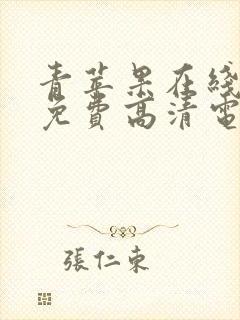 青苹果在线
免费高清電
張仁東